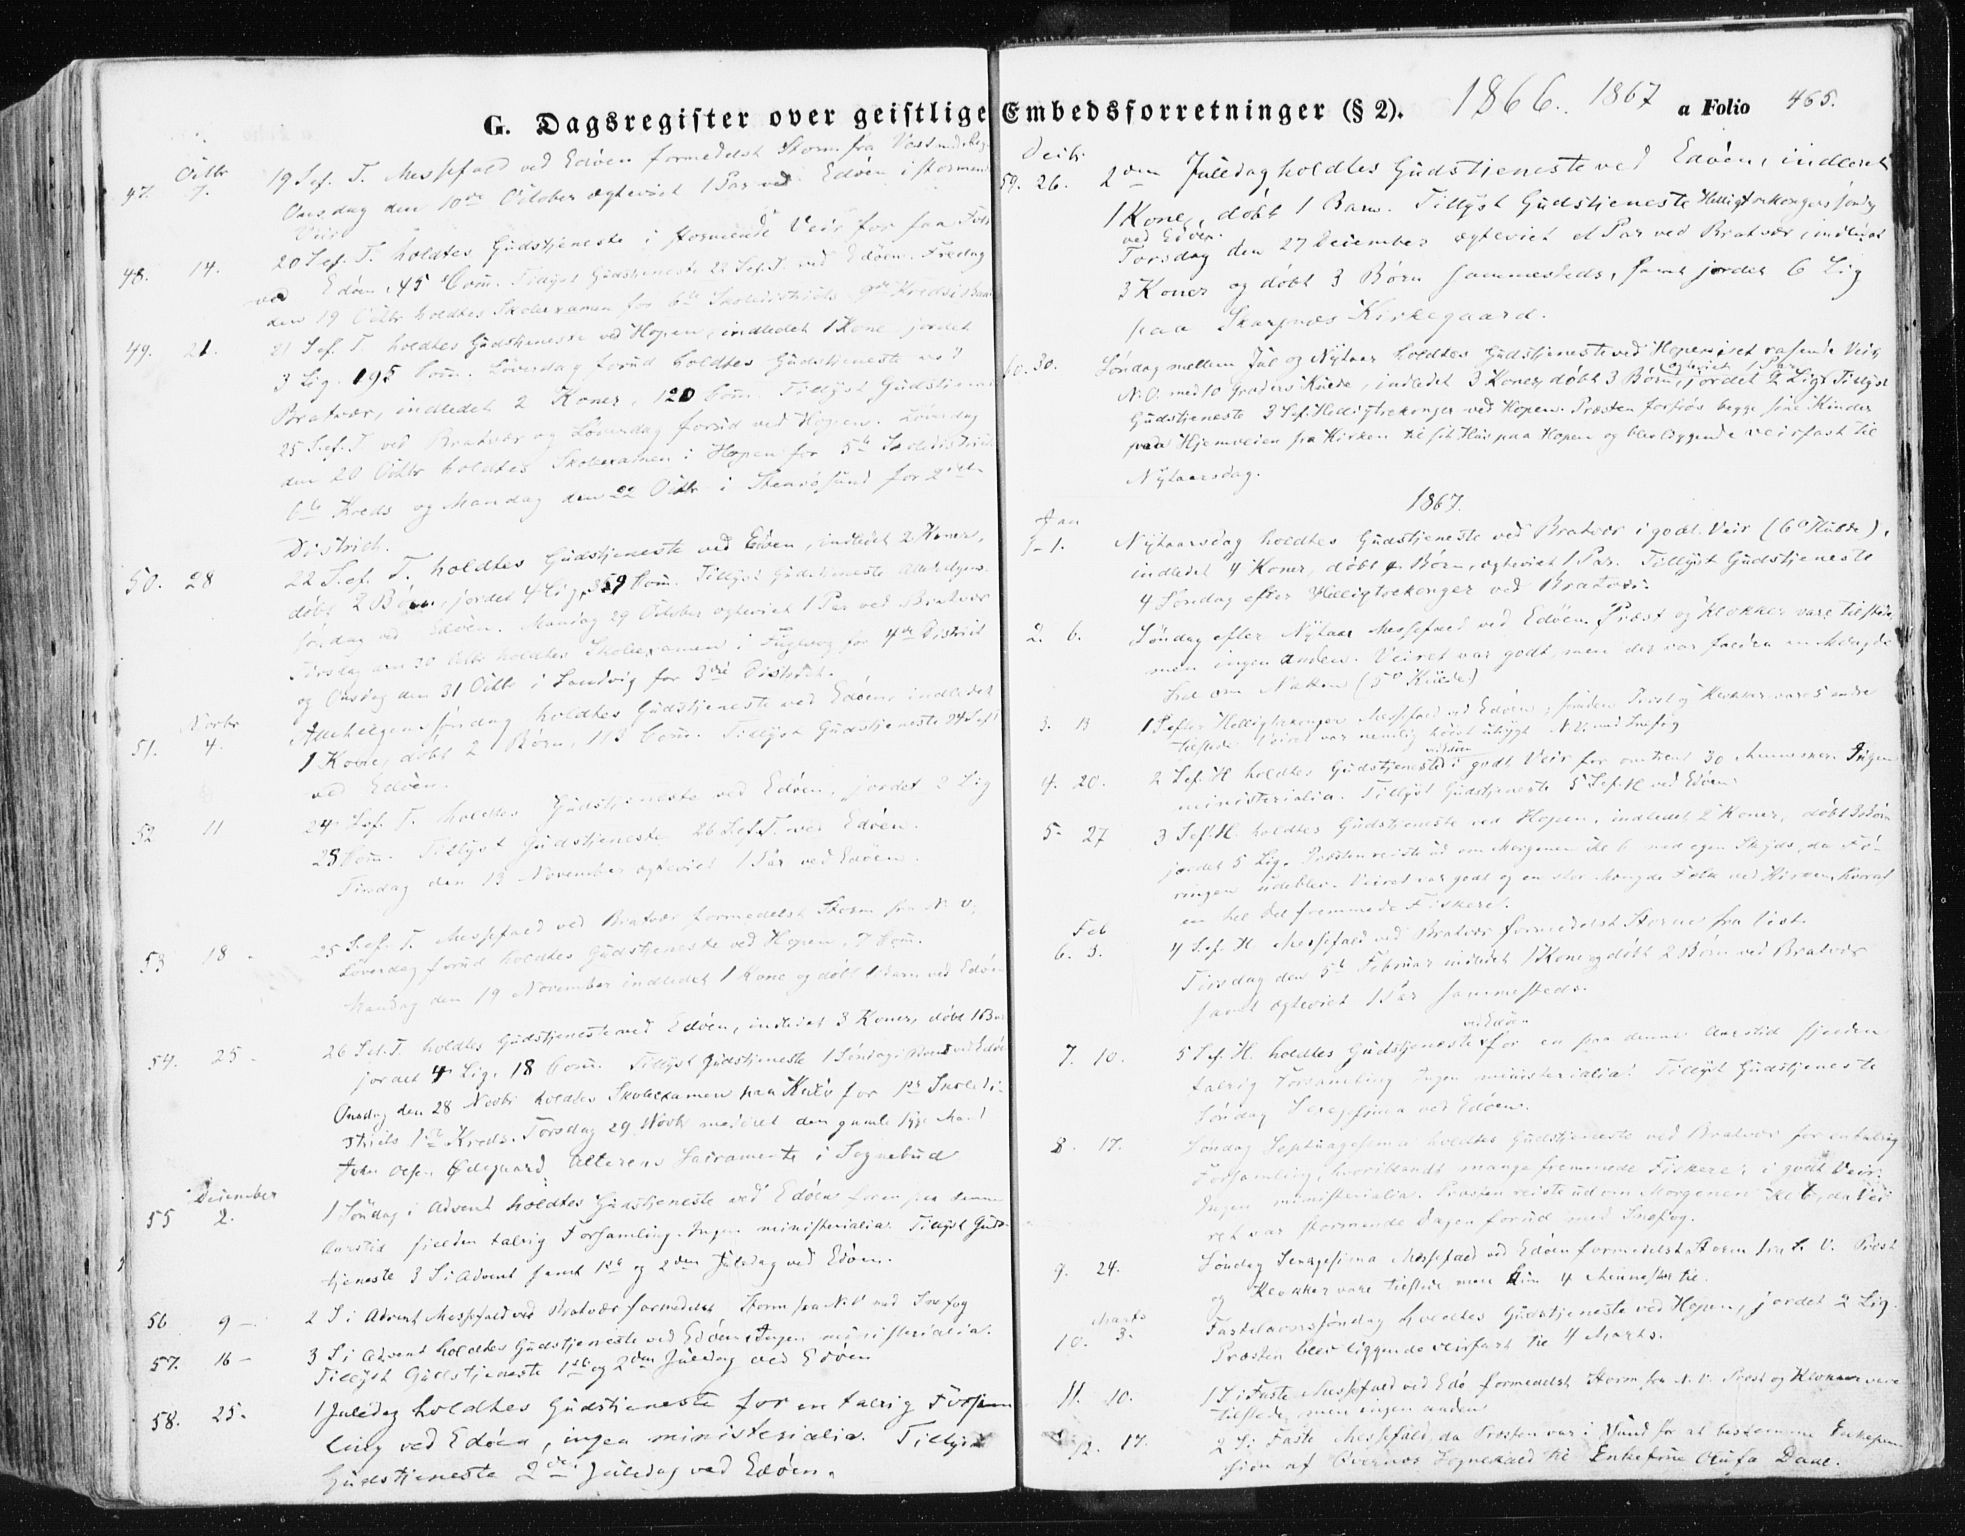 G. Dagsregister over geistlige Embedsforretninger (§ 2). 1866. 1867 a Folio 465.
Octbr
47. 7. 19 S. ef. T. Messefald ved Edöen formedelst Storm fra Vest med Regn
Onsdag den 10de October ægteviet 1 Par ved Edöen i stormende
Veir
48. 14. 20 S. ef. T. holdtes Gudstjeneste i stormende Veir for faa Folk
ved Edöen, 45 Com. Tillyst Gudstjeneste 22 S. ef. T. ved Edöen. Fredag
den 19 Octbr holdtes Skoleexamen for 6te Skoledistrikts
49. 21. 21 S. ef. T. holdtes Gudstjeneste ved Hopen, indledet 1 Kone, jordet
3 Lig. 195 Com. Löverdag forud holdtes Gudstjeneste ved
Bratvær, indledet 2 Koner, 120 Com. Tillyst Gudstjeneste
25 S. ef. T. ved Bratvær og Löverdag forud ved Hopen. Löverdag
den 20 Octbr holdtes Skoleexamen i Hopen for 5te Skoledistrikts
6te Kreds og Mandag den 22 Octbr i Steinösund for 2det
District.
50. 28 22 S. ef. T. holdtes Gudstjeneste ved Edöen, indledet 2 Koner,
döbt 2 Börn, jordet 4 Lig, 359 Com. Tillyst Gudstjeneste Allehelgens-
söndag ved Edöen. Mandag 29 October ægteviet 1 Par ved Bratvær
Tirsdag den 30 Octbr holdtes Skoleexamen i Fuglevog for 4de District
og Onsdag den 31 Octbr i Sandvig for 3die District.
Novbr
51. 4. Allehelgenssöndag holdtes Gudstjeneste ved Edöen, indledet
1 Kone, döbt 2 Börn, 113 Com. Tillyst Gudstjeneste 24 S. ef. T
ved Edöen.
52 11 24 S. ef. T. holdtes Gudstjeneste ved Edöen, jordet 2 Lig
25 Com. Tillyst Gudstjeneste 26 S. ef. T. ved Edöen.
Tirsdag den 13 November ægteviet 1 Par ved Edöen.
53 18 25 S. ef. T. Messefald ved Bratvær formedelst Storm fra N. V,
Löverdag forud holdtes Gudstjeneste ved Hopen, 7 Com.
Mandag den 19 November indledet 1 Kone og döbt 1 Barn ved Edöen
54. 25 26 S. ef. T. holdtes Gudstjeneste ved Edöen, indledet 3 Koner, döbt 1 Barn
jordet 4 Lig, 18 Com. Tillyst Gudstjeneste 1 Söndag i Advent ved Edöen
Onsdag den 28 Novbr holdtes Skoleexamen paa Kulö for 1ste Skoledi-
strikts 1ste Kreds. Torsdag 29 Novbr meddelt den gamle syge Mand
John Olsen Ödegaard Alterens Sacramente i Sognebud
December
55 2. 1 Söndag i Advent holdtes Gudstjeneste ved Edöen for en paa denne
Aarstid sjelden talrig Forsamling. Ingen ministerialia. Tillyst Guds-
tjeneste 3 S i Advent samt 1ste og 2den Juledag ved Edöen.
56 9 2 S i Advent Messefald ved Bratvær formedelst Storm fra N.V med Snefog
57. 16 3 S i Advent holdtes Gudstjeneste ved Edöen. Ingen ministerialia.
Tillyst Gudstjeneste 1ste og 2den Juledag ved Edöen.
58. 25. 1 Juledag holdtes Gudstjeneste for en talrig Forsam
ling ved Edöen, ingen ministerialia. Tillyst
Gudstjeneste 2den Juledag ved Edöen.
Decbr
59. 26. 2den Juledag holdtes Gudstjeneste ved Edöen, indledet
1 Kone, döbt 1 Barn. Tillyst Gudstjeneste Helligtrekongers söndag
ved Edöen.
Torsdag den 27 December ægteviet et Par ved Bratvær, indledet
3 Koner og döbt 3 Börn sammesteds, samt jordet 6 Lig
paa Skarpnæs Kirkegaard.
60. 30. Söndag mellem Jul og Nytaar holdtes Gudstjeneste ved Hopen i et rasende Veir
ægteviet 1 Par
N.O. med 10 Graders Kulde, indledet 3 Koner, döbt 3 Börn, jordet 2 Lig. Tillyst
Gudstjeneste 3 S. ef. Helligtrekonger ved Hopen. Præsten forfrös begge sine Kinder
paa Hjemveien fra Kirken til sit Hus paa Hopen og blev liggende veirfast til
Nytaarsdag.
1867.
Jan
1. 1. Nytaarsdag holdtes Gudstjeneste ved Bratvær i godt Veir (6° Kulde),
indledet 4 Koner, döbt 4 Börn, ægteviet 1 Par. Tillyst Gudstjeneste
4 Söndag efter Helligtrekonger ved Bratvær.
2. 6. Söndag efter Nytaar Messefald ved Edöen. Præst og Klokker vare tilstede,
men ingen anden. Veiret var godt, men der var falden en Mængde
Sne om Natten (5° Kulde)
3. 13 1 S efter Helligtrekonger Messefald ved Edöen, foruden Præst og Klokker vare 5 andre
tilstede. Veiret var nemlig höist uhygg. N.O. med Snefog
4. 20. 2 S. ef. H. holdtes Gudstjeneste ved Edöen i godt Veir for omtrent 30 Mennesker. Ingen
ministerialia. Tillyst Gudstjeneste 5 S. ef. H ved Edöen.
5. 27 3 S. ef. H. holdtes Gudstjeneste ved Hopen, indledet 2 Koner, döbt 3 Börn
jordet 5 Lig. Præsten reiste ud om Morgenen Kl 6 med egen Skyds, da Fö-
ringen udeblev. Veiret var godt og en stor Mængde Folk ved Kirken, hvoraf
en hel Del fremmede Fiskere.
Feb
6. 3. 4 S. ef. H Messefald ved Bratvær formedelst Storm fra Vest.
Tirsdag den 5te Februar indledet 1 Kone og döbt 2 Börn ved Bratvær
samt ægteviet 1 Par sammesteds.
7. 10. 5 S. ef. H. holdtes Gudstjeneste ved Edöen for en paa denne Aarstid sjelden
talrig Forsamling. Ingen ministerialia. Tillyst Gudstjeneste
Söndag Sexagesima ved Edöen.
8. 17. Söndag Septuagesima holdtes Gudstjeneste ved Bratvær for en talrig
Forsamling, hvoriblandt mange fremmede Fiskere, i godt Veir.
Ingen ministerialia. Præsten reiste ud om Morgenen Kl 6, da Vei
ret var stormende Dagen forud med Snefog.
9. 24. Söndag Sexagesima Messefald ved Edöen formedelst Storm fra S. V. Præst
og Klokker vare tilstede men kun 4 Mennesker til.
Marts
10. 3. Fastelavnssöndag holdtes Gudstjeneste ved Hopen, jordet 2 Lig.
Præsten blev liggende veirfast til 4 Marts.
11. 10. 1 S i Faste Messefald ved Edö formedelst Storm fra N. V. Præst og Klokker vare
tilstede, men ingen anden
12. 17. 2 S i Faste Messefald, da Præsten var i Sund for at bestemme Enkepen
sion af Qvernæs Sognekald til Enkefrue Olufa Daae.